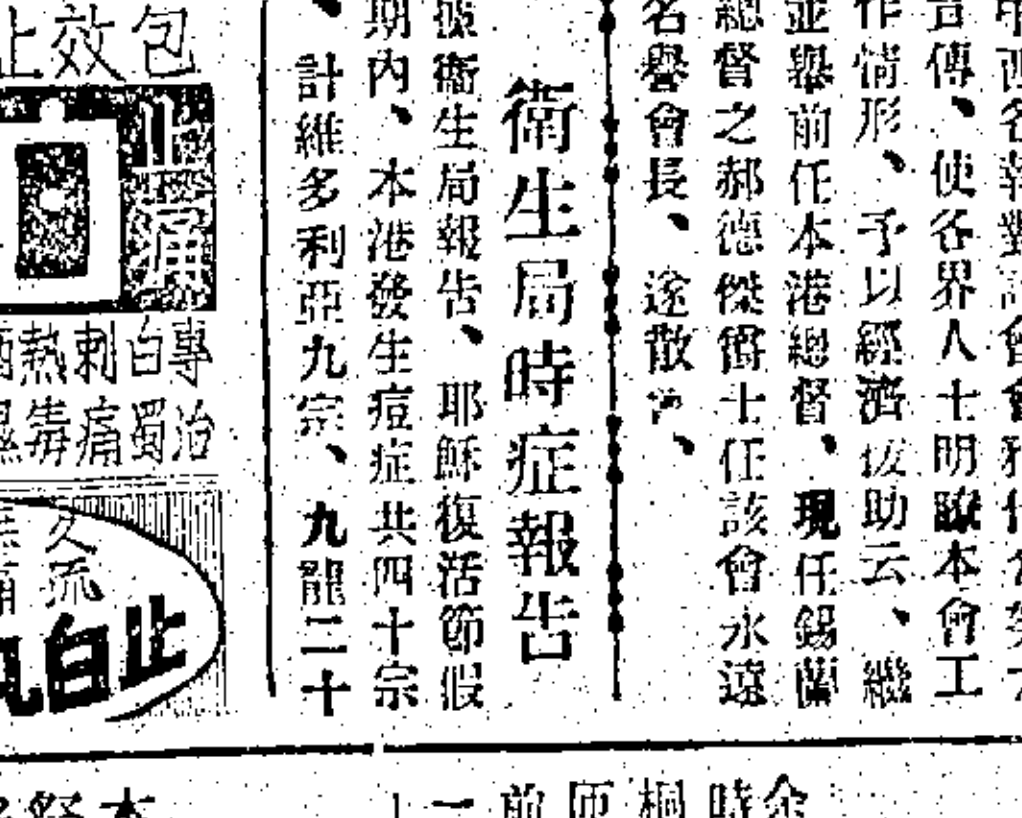 言傳、使各界人士明瞭本會工
作情形、予以經濟援助云、繼
並舉前任本港總督、現任錫蘭
總督之郝德傑爵士任該會永遠
名譽會長、遂散會、
衛生局時症報告
據衛生局報告、耶穌復活節假
期內、本港發生痘症共四十宗
、計維多利亞九宗、九龍二十
包效止
止痛
專治
白濁
刺痛
熱毒
久流
止白